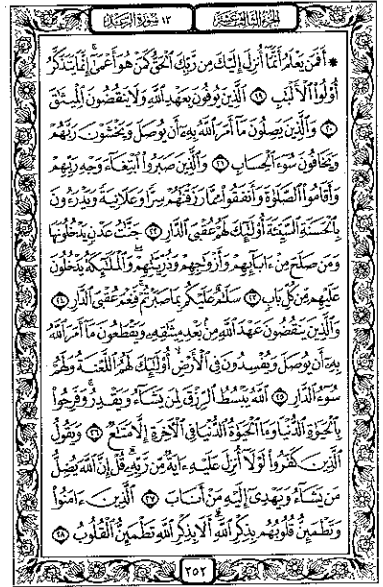 الجزء الثالث عشر
١٣ سورة الرعد
* أَفَمَن يَعْلَمُ أَنَّمَآ أُنزِلَ إِلَيْكَ مِن رَّبِّكَ ٱلْحَقُّ كَمَنْ هُوَ أَعْمَىٰٓ إِنَّمَا يَتَذَكَّرُ
أُو۟لُوا۟ ٱلْأَلْبَٰبِ ١٩ ٱلَّذِينَ يُوفُونَ بِعَهْدِ ٱللَّهِ وَلَا يَنقُضُونَ ٱلْمِيثَٰقَ
٢٠ وَٱلَّذِينَ يَصِلُونَ مَآ أَمَرَ ٱللَّهُ بِهِۦٓ أَن يُوصَلَ وَيَخْشَوْنَ رَبَّهُمْ
وَيَخَافُونَ سُوٓءَ ٱلْحِسَابِ ٢١ وَٱلَّذِينَ صَبَرُوا۟ ٱبْتِغَآءَ وَجْهِ رَبِّهِمْ
وَأَقَامُوا۟ ٱلصَّلَوٰةَ وَأَنفَقُوا۟ مِمَّا رَزَقْنَٰهُمْ سِرًّا وَعَلَانِيَةً وَيَدْرَءُونَ
بِٱلْحَسَنَةِ ٱلسَّيِّئَةَ أُو۟لَٰٓئِكَ لَهُمْ عُقْبَى ٱلدَّارِ ٢٢ جَنَّٰتُ عَدْنٍ يَدْخُلُونَهَا
وَمَن صَلَحَ مِنْ ءَابَآئِهِمْ وَأَزْوَٰجِهِمْ وَذُرِّيَّٰتِهِمْ وَٱلْمَلَٰٓئِكَةُ يَدْخُلُونَ
عَلَيْهِم مِّن كُلِّ بَابٍ ٢٣ سَلَٰمٌ عَلَيْكُم بِمَا صَبَرْتُمْ فَنِعْمَ عُقْبَى ٱلدَّارِ ٢٤
وَٱلَّذِينَ يَنقُضُونَ عَهْدَ ٱللَّهِ مِنۢ بَعْدِ مِيثَٰقِهِۦ وَيَقْطَعُونَ مَآ أَمَرَ ٱللَّهُ
بِهِۦٓ أَن يُوصَلَ وَيُفْسِدُونَ فِى ٱلْأَرْضِ أُو۟لَٰٓئِكَ لَهُمُ ٱللَّعْنَةُ وَلَهُمْ
سُوٓءُ ٱلدَّارِ ٢٥ ٱللَّهُ يَبْسُطُ ٱلرِّزْقَ لِمَن يَشَآءُ وَيَقْدِرُ وَفَرِحُوا۟
بِٱلْحَيَوٰةِ ٱلدُّنْيَا وَمَا ٱلْحَيَوٰةُ ٱلدُّنْيَا فِى ٱلْأَخِرَةِ إِلَّا مَتَٰعٌ ٢٦ وَيَقُولُ
ٱلَّذِينَ كَفَرُوا۟ لَوْلَآ أُنزِلَ عَلَيْهِ ءَايَةٌ مِّن رَّبِّهِۦ قُلْ إِنَّ ٱللَّهَ يُضِلُّ
مَن يَشَآءُ وَيَهْدِىٓ إِلَيْهِ مَنْ أَنَابَ ٢٧ ٱلَّذِينَ ءَامَنُوا۟
وَتَطْمَئِنُّ قُلُوبُهُم بِذِكْرِ ٱللَّهِ أَلَا بِذِكْرِ ٱللَّهِ تَطْمَئِنُّ ٱلْقُلُوبُ ٢٨
٢٥٢